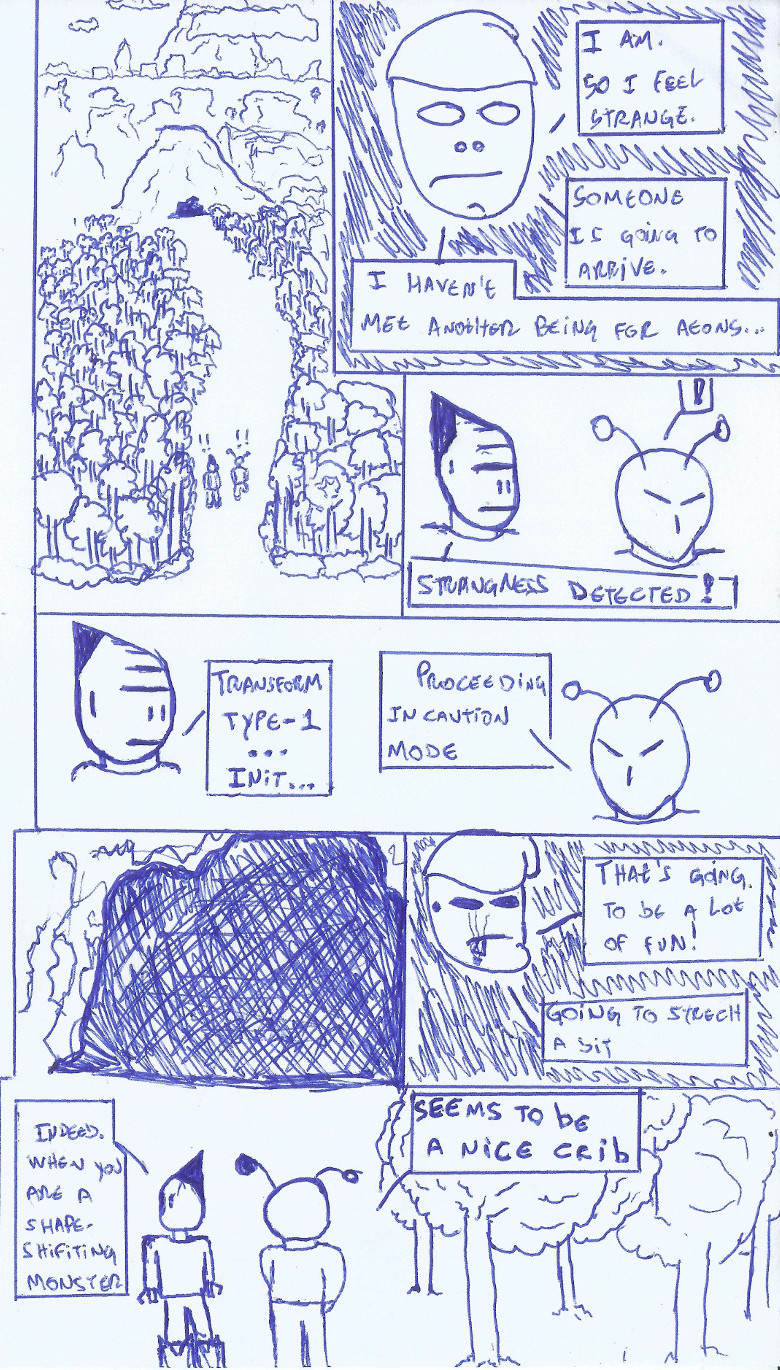 I AM.
SO I FEEL
STRANGE.
SOMEONE
IS GOING TO
ARRIVE.
I HAVEN'T
MET ANOTHER BEING FOR AEONS...
!! !!
!
STRANGNESS DETECTED!
TRANSFORM
TYPE-1
...
INIT...
PROCEEDING
IN CAUTION
MODE
THAT'S GOING
TO BE A LOT
OF FUN!
GOING TO STRECH
A BIT
SEEMS TO BE
A NICE CRIB
INDEED.
WHEN YOU
ARE A
SHAPE-
SHIFITING
MONSTER